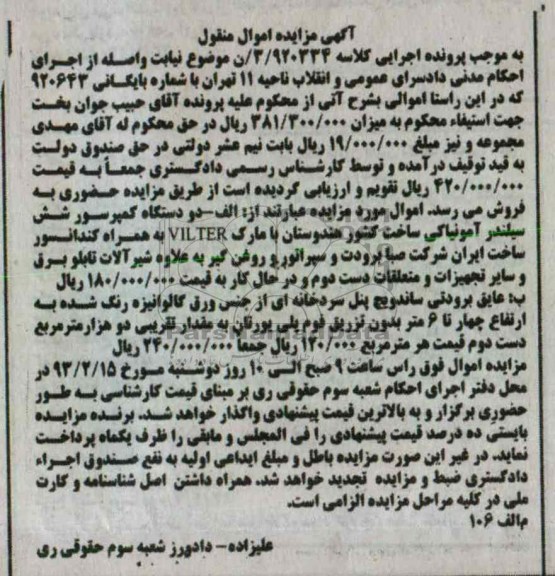 آگهی مزایده اموال منقول
به موجب پرونده اجرایی کلاسه ۳/۹۲۰۳۳۴/ن موضوع نیابت واصله از اجرای
احکام مدنی دادسرای عمومی و انقلاب ناحیه ۱۱ تهران با شماره بایگانی ۹۲۰۶۴۳
که در این راستا اموالی بشرح آتی از محکوم علیه پرونده آقای حبیب جوان بخت
جهت استیفاء محکوم به میزان ۳۸۱/۳۰۰/۰۰۰ ریال در حق محکوم له آقای مهدی
مجموعه و نیز مبلغ ۱۹/۰۰۰/۰۰۰ ریال بابت نیم عشر دولتی در حق صندوق دولت
به قید توقیف درآمده و توسط کارشناس رسمی دادگستری جمعاً به قیمت
۴۲۰/۰۰۰/۰۰۰ ریال تقویم و ارزیابی گردیده است از طریق مزایده حضوری به
فروش می رسد. اموال مورد مزایده عبارتند از: الف-دو دستگاه کمپرسور شش
سیلندر آمونیاکی ساخت کشور هندوستان با مارک VILTER به همراه کندانسور
ساخت ایران شرکت صبا برودت و سپراتور و روغن گیر به علاوه شیرآلات تابلو برق
و سایر تجهیزات و متعلقات دست دوم و در حال کار به قیمت ۱۸۰/۰۰۰/۰۰۰ ریال
ب: عایق برودتی ساندویچ پنل سردخانه ای از جنس ورق گالوانیزه رنگ شده به
ارتفاع چهار تا ۶ متر بدون تزریق فوم پلی یورتان به مقدار تقریبی دو هزار مترمربع
دست دوم قیمت هر مترمربع ۱۲۰/۰۰۰ ریال جمعا ۲۴۰/۰۰۰/۰۰۰ ریال
مزایده اموال فوق راس ساعت ۹ صبح الی ۱۰ روز دوشنبه مورخ ۹۳/۲/۱۵ در
محل دفتر اجرای احکام شعبه سوم حقوقی ری بر مبنای قیمت کارشناسی به طور
حضوری برگزار و به بالاترین قیمت پیشنهادی واگذار خواهد شد. برنده مزایده
بایستی ده درصد قیمت پیشنهادی را فی المجلس و مابقی را ظرف یکماه پرداخت
نماید. در غیر این صورت مزایده باطل و مبلغ ایداعی اولیه به نفع صندوق اجراء
دادگستری ضبط و مزایده تجدید خواهد شد. همراه داشتن اصل شناسنامه و کارت
ملی در کلیه مراحل مزایده الزامی است.
م/الف ۱۰۶
علیزاده- دادورز شعبه سوم حقوقی ری